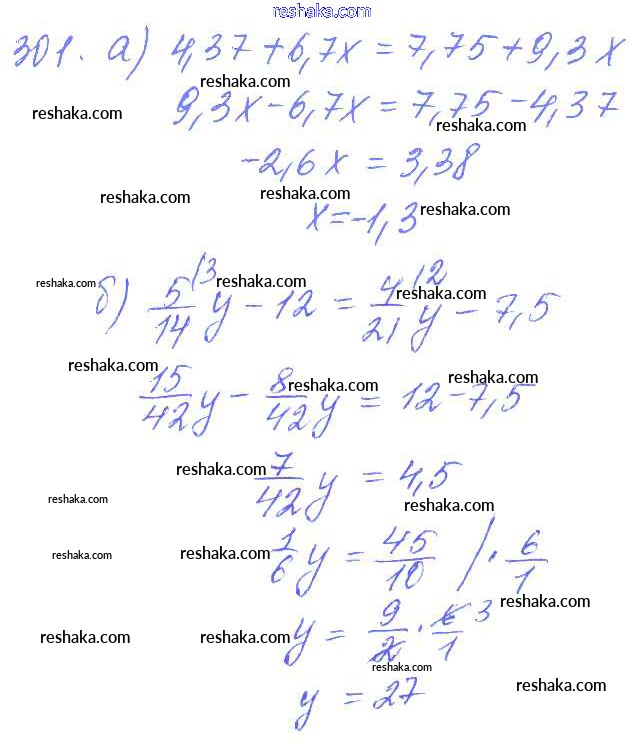 reshaka.com
301. а) 4,37 + 6,7x = 7,75 + 9,3x
reshaka.com
reshaka.com
9,3x - 6,7x = 7,75 - 4,37
reshaka.com
-2,6x = 3,38
reshaka.com reshaka.com
x = -1,3 reshaka.com
reshaka.com reshaka.com reshaka.com
б) 5/14 |3 y - 12 = 4/21 |2 y - 7,5
reshaka.com reshaka.com reshaka.com
15/42 y - 8/42 y = 12 - 7,5
reshaka.com
7/42 y = 4,5
reshaka.com reshaka.com
reshaka.com reshaka.com
1/6 y = 45/10 / · 6/1
reshaka.com
reshaka.com reshaka.com
y = 9/2 · 6/1 3
reshaka.com
y = 27
reshaka.com